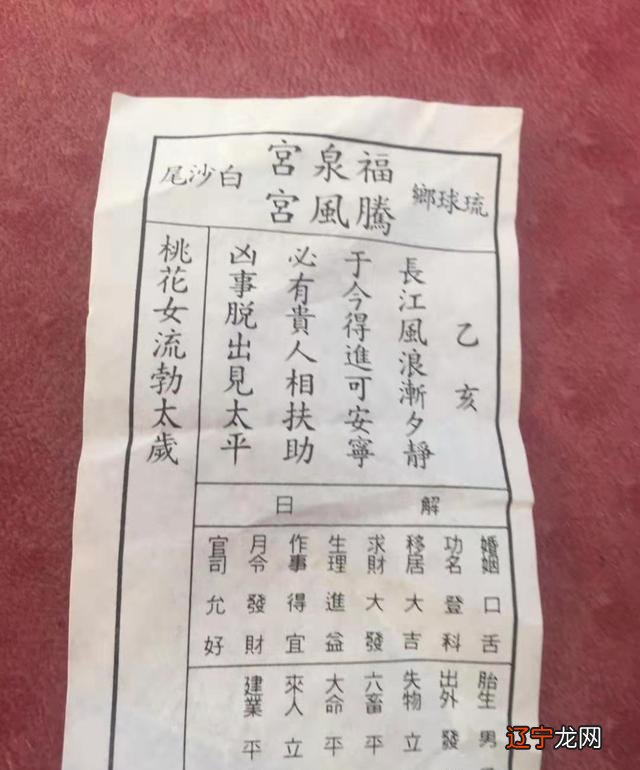 琉球鄉
福泉宮
騰風宮
白沙尾
乙亥
長江風浪漸夕靜
于今得進可安寧
必有貴人相扶助
凶事脱出見太平
桃花女流勃太歲
解曰
婚姻口舌
功名登科
移居大吉
求財大發
生理進益
作事得宜
月令發財
官司允好
胎生男
出外發
失物立
六畜平
大命平
來人立
建業平
辽宁龙网